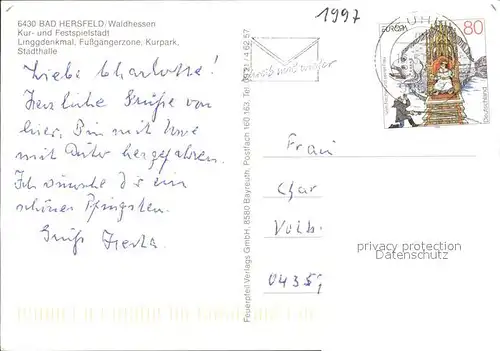 6430 BAD HERSFELD/Waldhessen
Kur- und Festspielstadt
Linggdenkmal, Fußgängerzone, Kurpark,
Stadthalle
1997
EUROPA
80
Deutschland
Liebe Charlotte!
Herzliche Grüße von
hier. Bin mit Uwe
mit Auto hergefahren.
Ich wünsche dir ein
schönes Pfingsten.
Gruß Herta.
Feuerpfeil Verlags GmbH, 8580 Bayreuth, Postfach 160 163, Tel. 09 21 / 4 62 57
Schreib mal wieder
Frau
Char
04359
privacy protection
Datenschutz